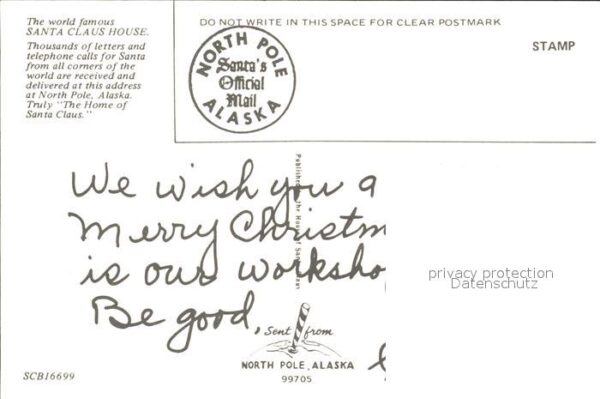 The world famous
SANTA CLAUS HOUSE.
Thousands of letters and
telephone calls for Santa
from all corners of the
world are received and
delivered at this address
at North Pole, Alaska.
Truly "The Home of
Santa Claus."
DO NOT WRITE IN THIS SPACE FOR CLEAR POSTMARK
STAMP
NORTH POLE
Santa's
Official
Mail
ALASKA
We wish you a
Merry Christm
is our worksho
Be good,
privacy protection
Datenschutz
Sent from
NORTH POLE, ALASKA
99705
SCB16699